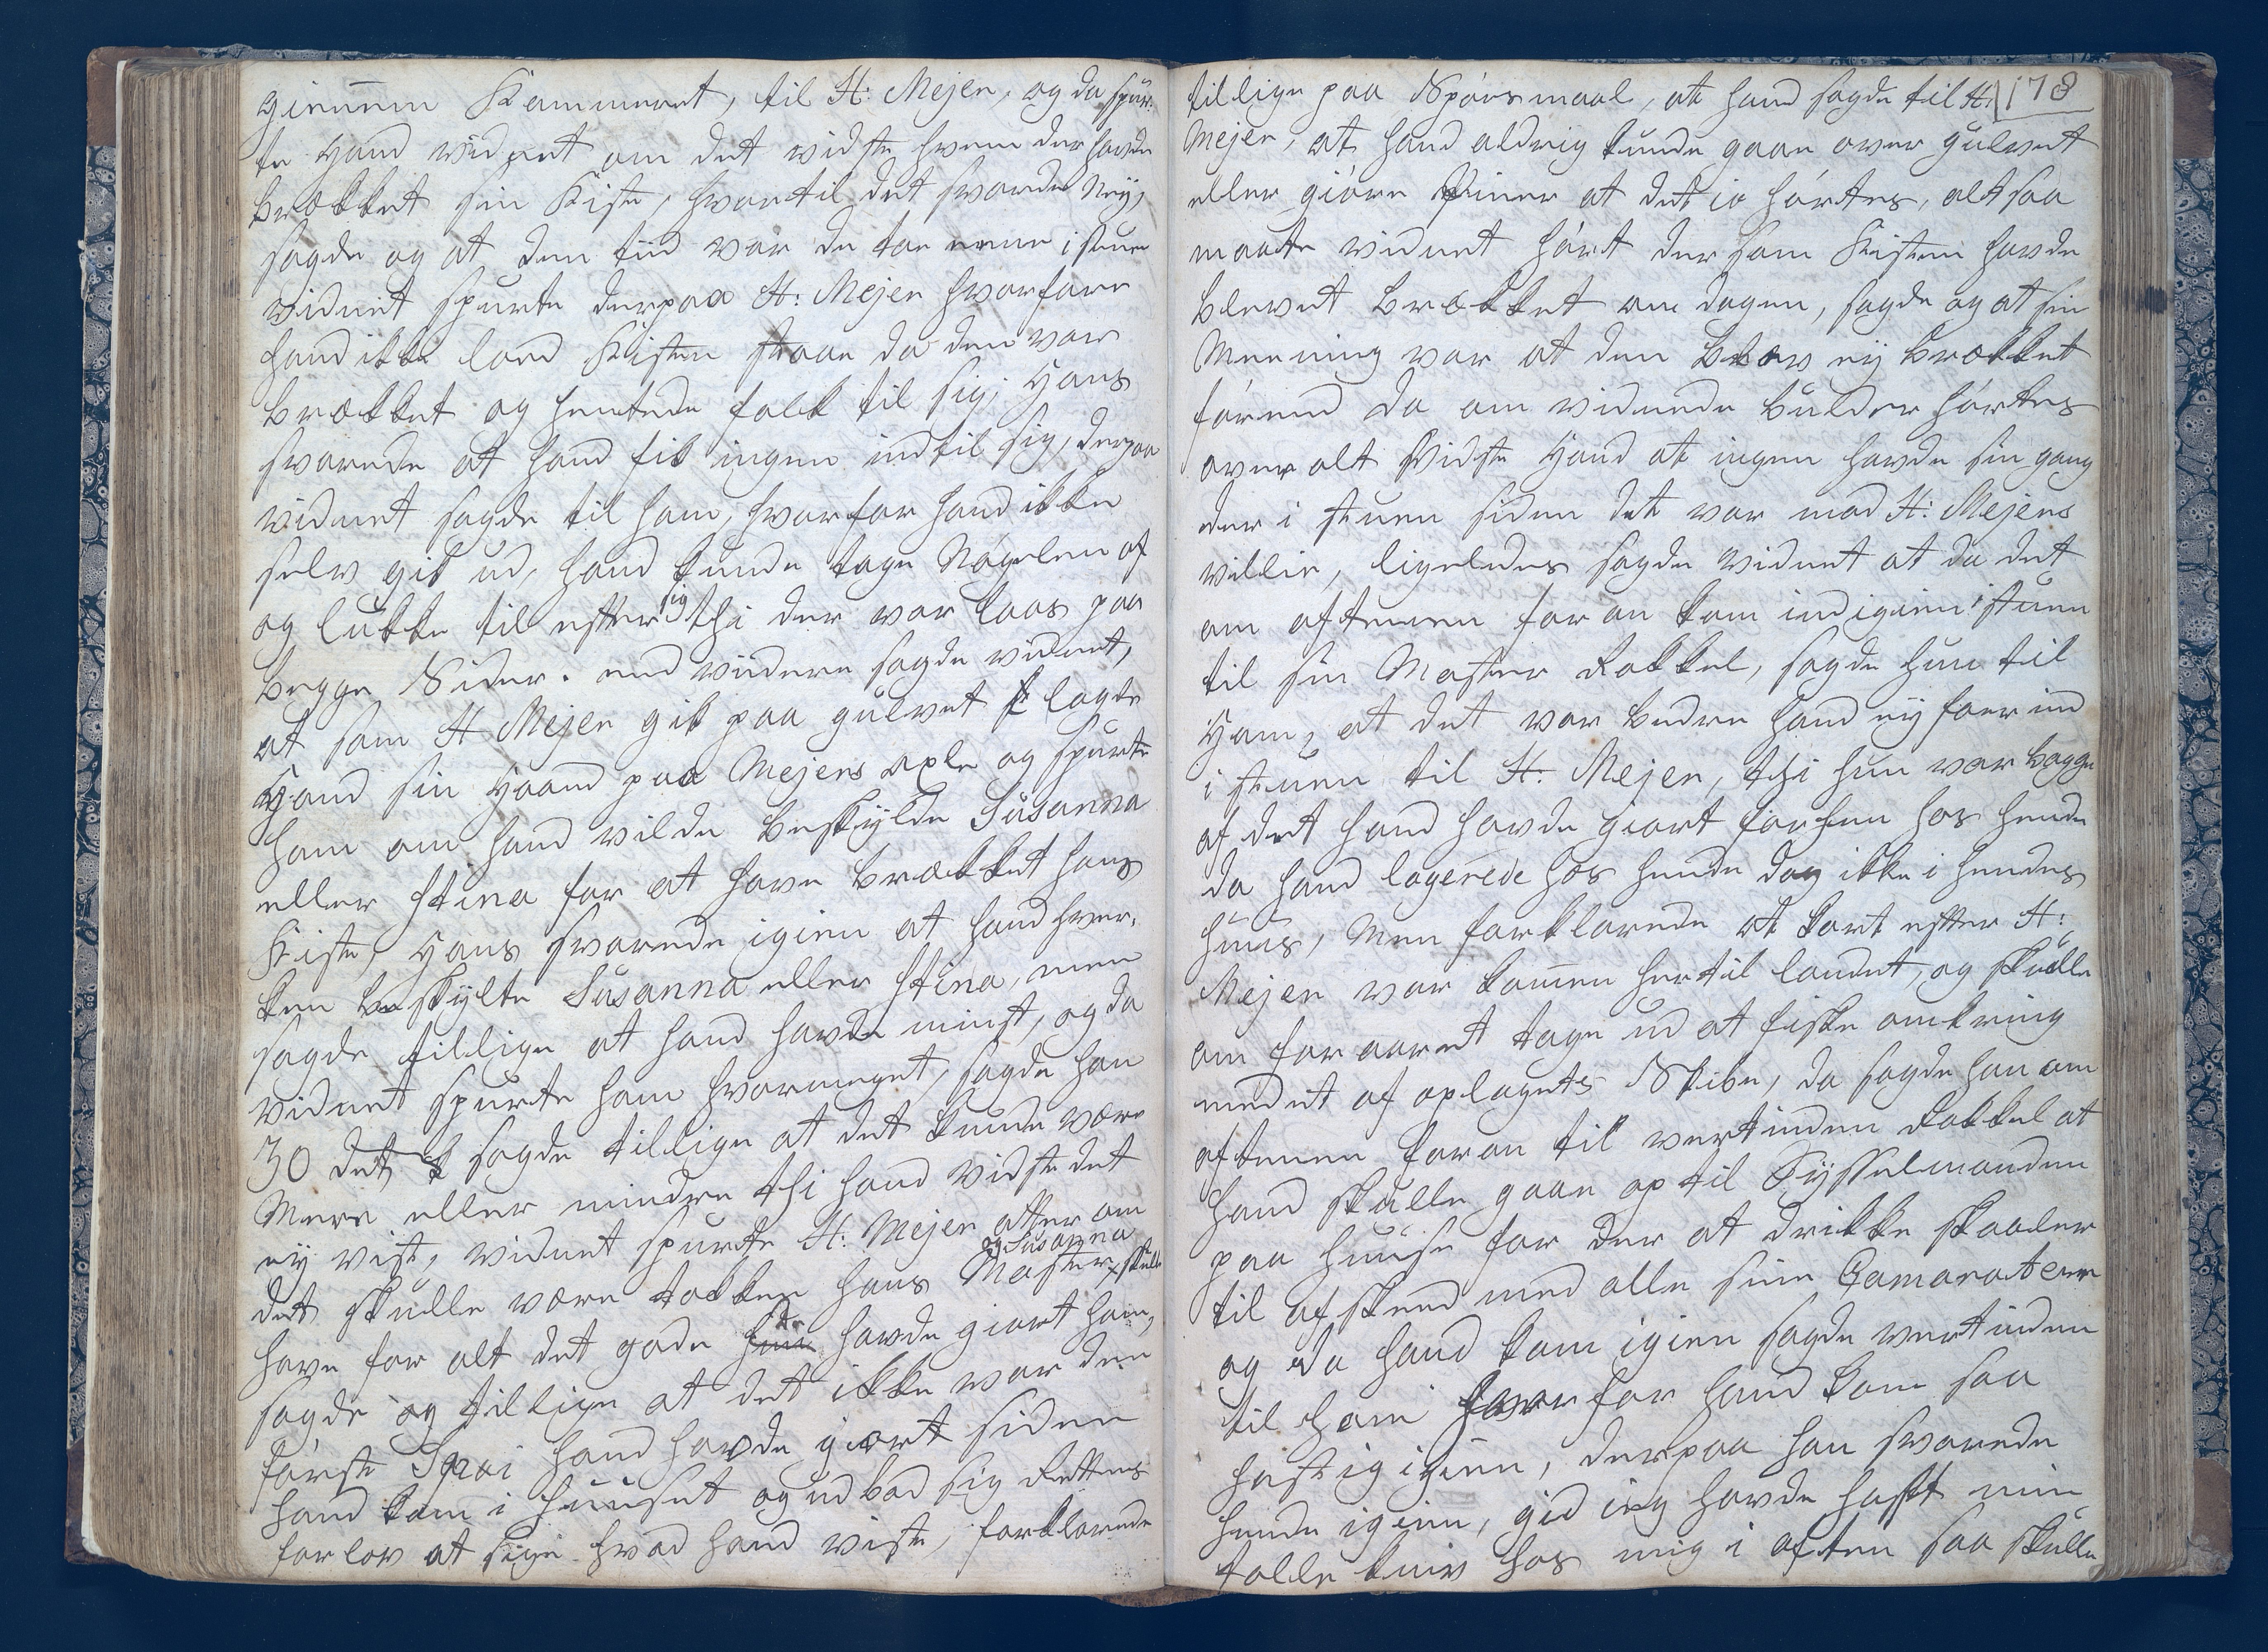 giennem Kammeret, til H: Mejer, og da spur-
te Hand vidnet om det vidste hvem der havde
brækket sin Kiste, hvortil det svarede Neÿ,
sagde og at den tiid var de toe eene i stuen
vidnet spurte derpaa H: Mejer hvorfore
hand ikke loed Kisten staae da den var
brækket og hentede folk til sig, Hans
svarede at hand fik ingen ind til sig, derpaa
vidnet sagde til ham, hvorfor hand ikke
selv gik ud, hand kunde tage Nøgelen af
og lukke til efter sig thi der var laas paa
begge Sider. end viidere sagde vidnet,
at som H Mejer gik paa gulvet lagde
Hand sin Haand paa Mejers axle og spurte
ham om hand vilde beskÿlde Susanna
eller Stina for at have brækket hans
Kiste, Hans svarede igien at hand hver-
ken beskÿlte Susanna eller Stina, men
sagde tillige at hand havde mist, og da
vidnet spurte ham hvormeget, sagde han
30 det sagde tillige at det kunde være
Mere eller mindre thi hand vidste det
eÿ vist, vidnet spurte H: Mejer atter om
det skulle være takken hans Moster og Susanna skulle
have for alt det gode de havde giort ham,
sagde og tillige at det ikke var den
første Spøi hand havde giort siden
hand kom i huuset og udbad sig Rettens
forlov at sige hvad hand viste, forklarede
tillige paa Spørsmaal, at hand sagde til H: 178
Mejer, at hand aldrig kunde gaae over gulvet
eller giøre Miner at det io hørtes, altsaa
maate vidnet hørt dersom Kisten havde
blevet brækket om dagen, sagde og at sin
Meening var at den blev eÿ brækket
førend da om vidnede bulder hørtes
over alt Vidste Hand at ingen havde sin gang
der i stuen siden det var mod H: Mejers
villie, ligeledes sagde vidnet at da det
om aftenen foran kom ind igien i stuen
til sin Moster Rakkel, sagde hun til
Ham, at det var bedre hand eÿ foer ind
i stuen til H: Mejer, thi hun var bange
af det hand havde giort forhen hos hende
da hand logerede hos hende dog ikke i hendes
huus, Men forklarede at kort efter H:
Mejer var kommen hertil landet, og skulle
om foraaret tage ud at fiske omkring
med et af oplagets Skibe, da sagde han om
aftenen foran til vertinden Rakkel at
hand skulle gaae op til Sÿsselmanden
paa huuse for der at drikke skaaler
til afskeed med alle sine Camarater
og da hand kom igien sagde vertinden
til ham hvorfor hand kom saa
hastig igien, derpaa han svarede
hende igien, gid ieg havde haft min
tolle kniv hos mig i aften saa skulle